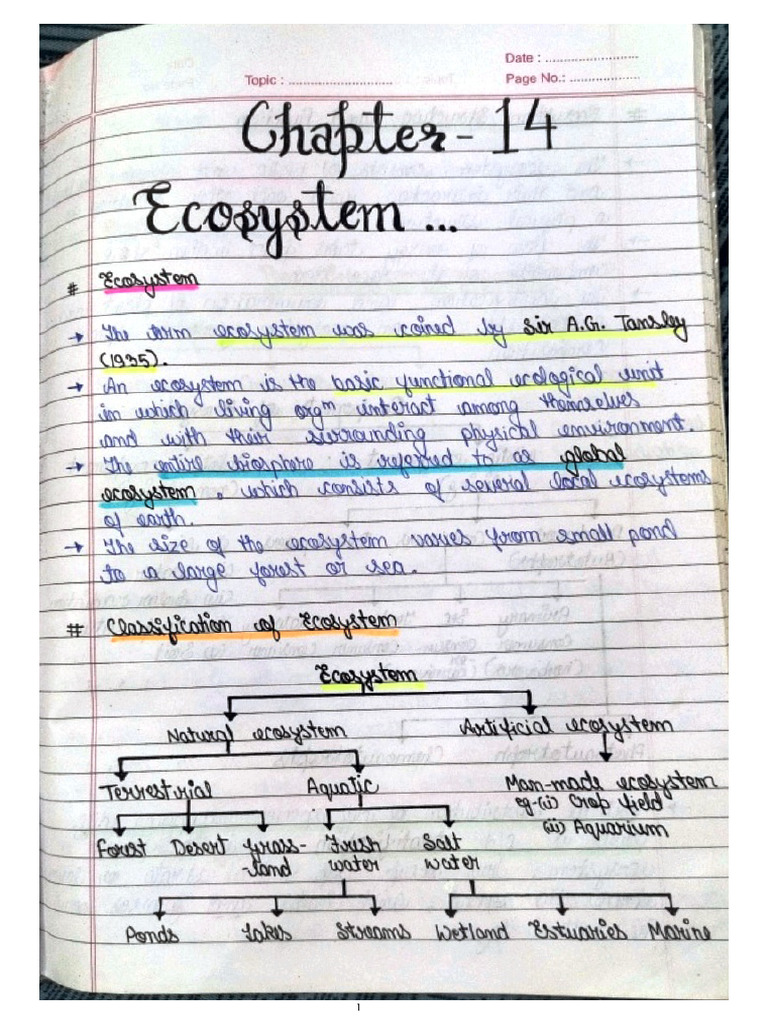 Date : ..........................
Topic : ............................. Page No.: ...................
Chapter - 14
Ecosystem ...
# Ecosystem
→ The term ecosystem was coined by Sir A.G. Tansley
(1935).
→ An ecosystem is the basic functional ecological unit
in which living orgᵐ interact among themselves
and with their surrounding physical environment.
→ The entire biosphere is referred to as global
ecosystem, which consists of several local ecosystems
of earth.
→ The size of the ecosystem varies from small pond
to a large forest or sea.
# Classification of Ecosystem
Ecosystem
Natural ecosystem Artificial ecosystem
Terrestrial Aquatic Man-made ecosystem
eg-(i) Crop field
(ii) Aquarium
Forest Desert Grass- Fresh Salt
-land water water
Ponds Lakes Streams Wetland Estuaries Marine
1